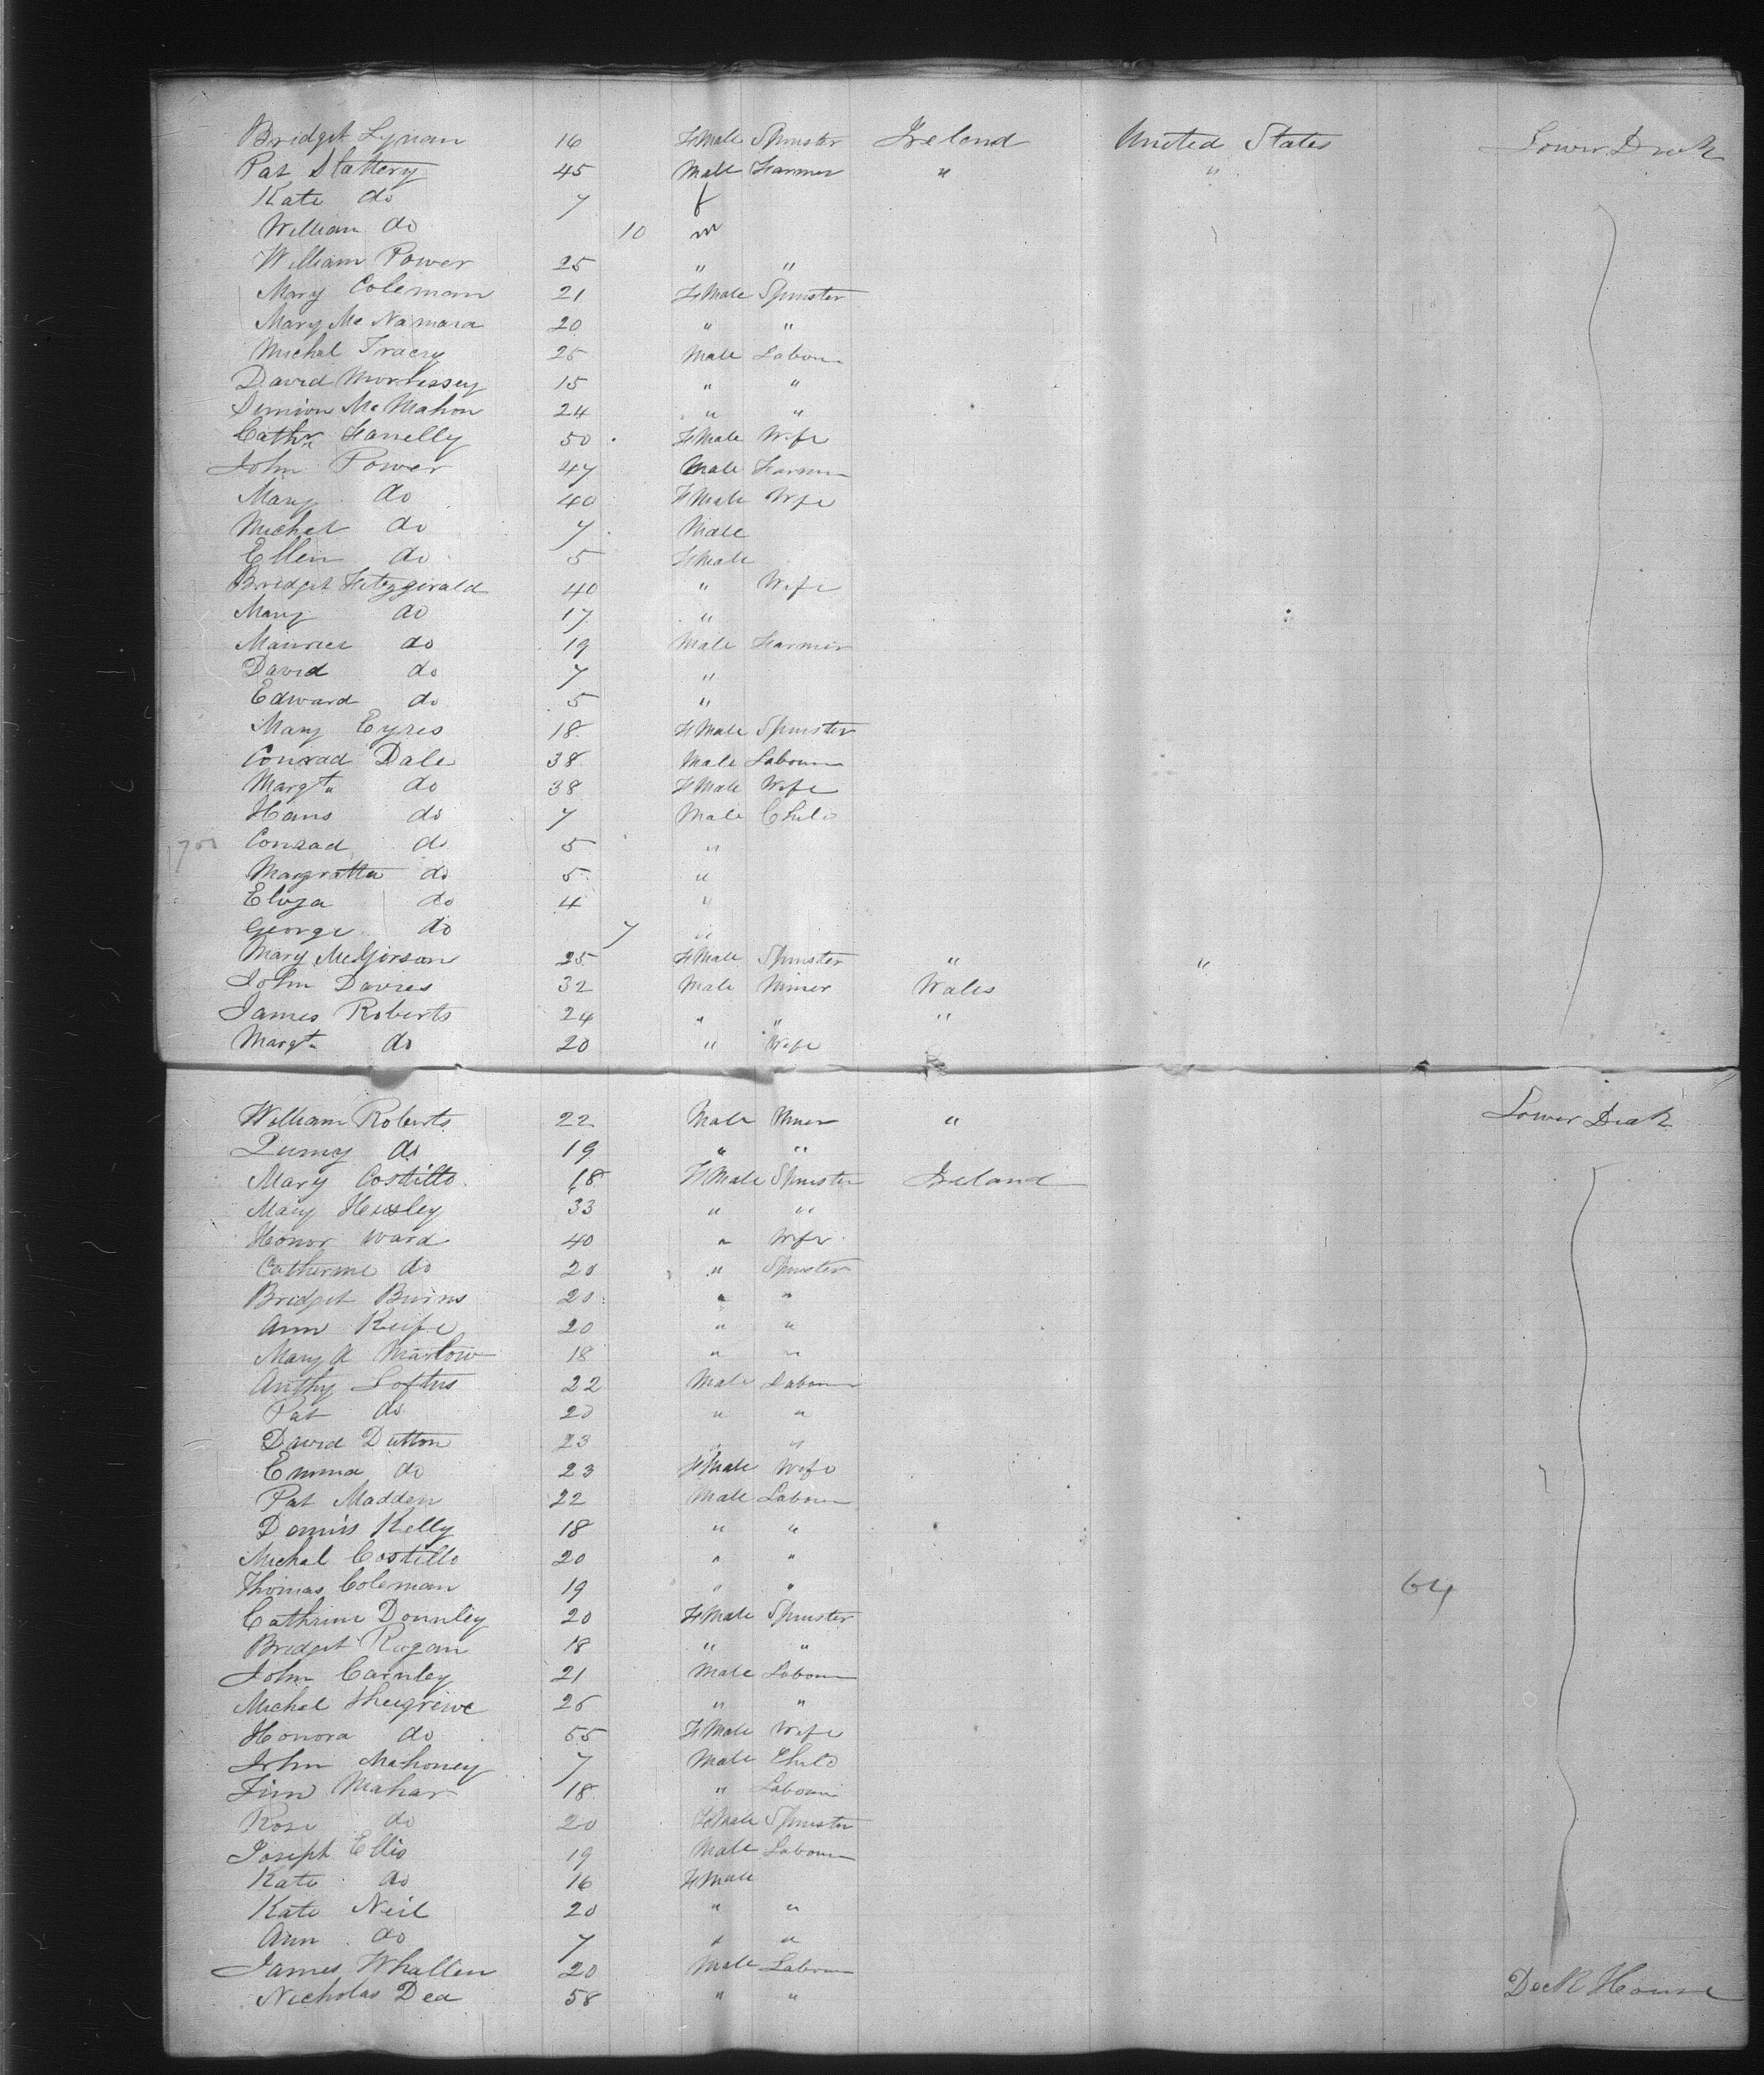 Bridget Lynan 16 FMale Spinster Ireland United States Lower Deck
Pat Slattery 45 Male Farmer " "
Kate do 7 f
William do 10 m
William Power 25 " "
Mary Coleman 21 FMale Spinster
Mary McNamara 20 " "
Michal Tracey 25 Male Labour
David Morrissey 15 " "
McMahon 24 " "
Cathr Fanelly 50 FMale Wife
John Power 47 Male Farmer
Mary do 40 FMale Wife
Michal do 7 Male
Ellen do 5 FMale
Bridget Fitzgerald 40 " Wife
Mary do 17 "
Maurice do 19 Male Farmer
David do 7 "
Edward do 5 "
Mary Eyres 18 FMale Spinster
Conrad Dale 38 Male Labour
Margta do 38 FMale Wife
Hans do 7 Male Child
Conrad do 5 "
Margratta do 5 "
Eliza do 4 "
George do 7 "
Mary 25 FMale Spinster " "
John Davies 32 Male Miner Wales
James Roberts 24 " " "
Margta do 20 " Wife
William Roberts 22 Male Miner " Lower Deck
do 19 " "
Mary Costillo 18 FMale Spinster Ireland
Mary Hensley 33 " "
Honor Ward 40 " Wife
Catherine do 20 " Spinster
Bridget Burns 20 " "
Ann Keife 20 " "
Mary A Marlow 18 " "
Anthy Loftus 22 Male Labour
Pat do 20 " "
David Dutton 23 " "
Emma do 23 FMale Wife
Pat Madden 22 Male Labour
Dennis Kelly 18 " "
Michal Costillo 20 " "
Thomas Coleman 19 " " 64
Cathrine Dounley 20 FMale Spinster
Bridget Regan 18 " "
John Carnley 21 Male Labour
Michal 26 " "
Honora do 55 FMale Wife
John Mahoney 7 Male Child
Tim Mahar 18 " Labour
Rose do 20 FMale Spinster
Joseph Ellis 19 Male Labour
Kate do 16 FMale
Kate Neil 20 " "
Ann do 7 " "
James Whallen 20 Male Labour
Nicholas Dea 58 " " Deck House